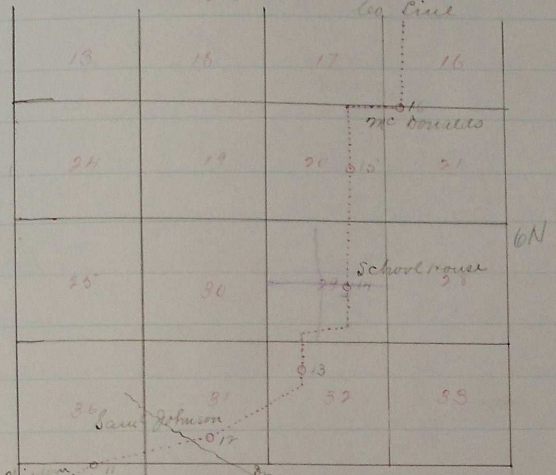 Co Line
13 18 17 16
16
Mc Donalds
24 19 20 15 21
6N
School House
25 30 29 14 28
13
36 31 32 33
Sam Johnson
12
11